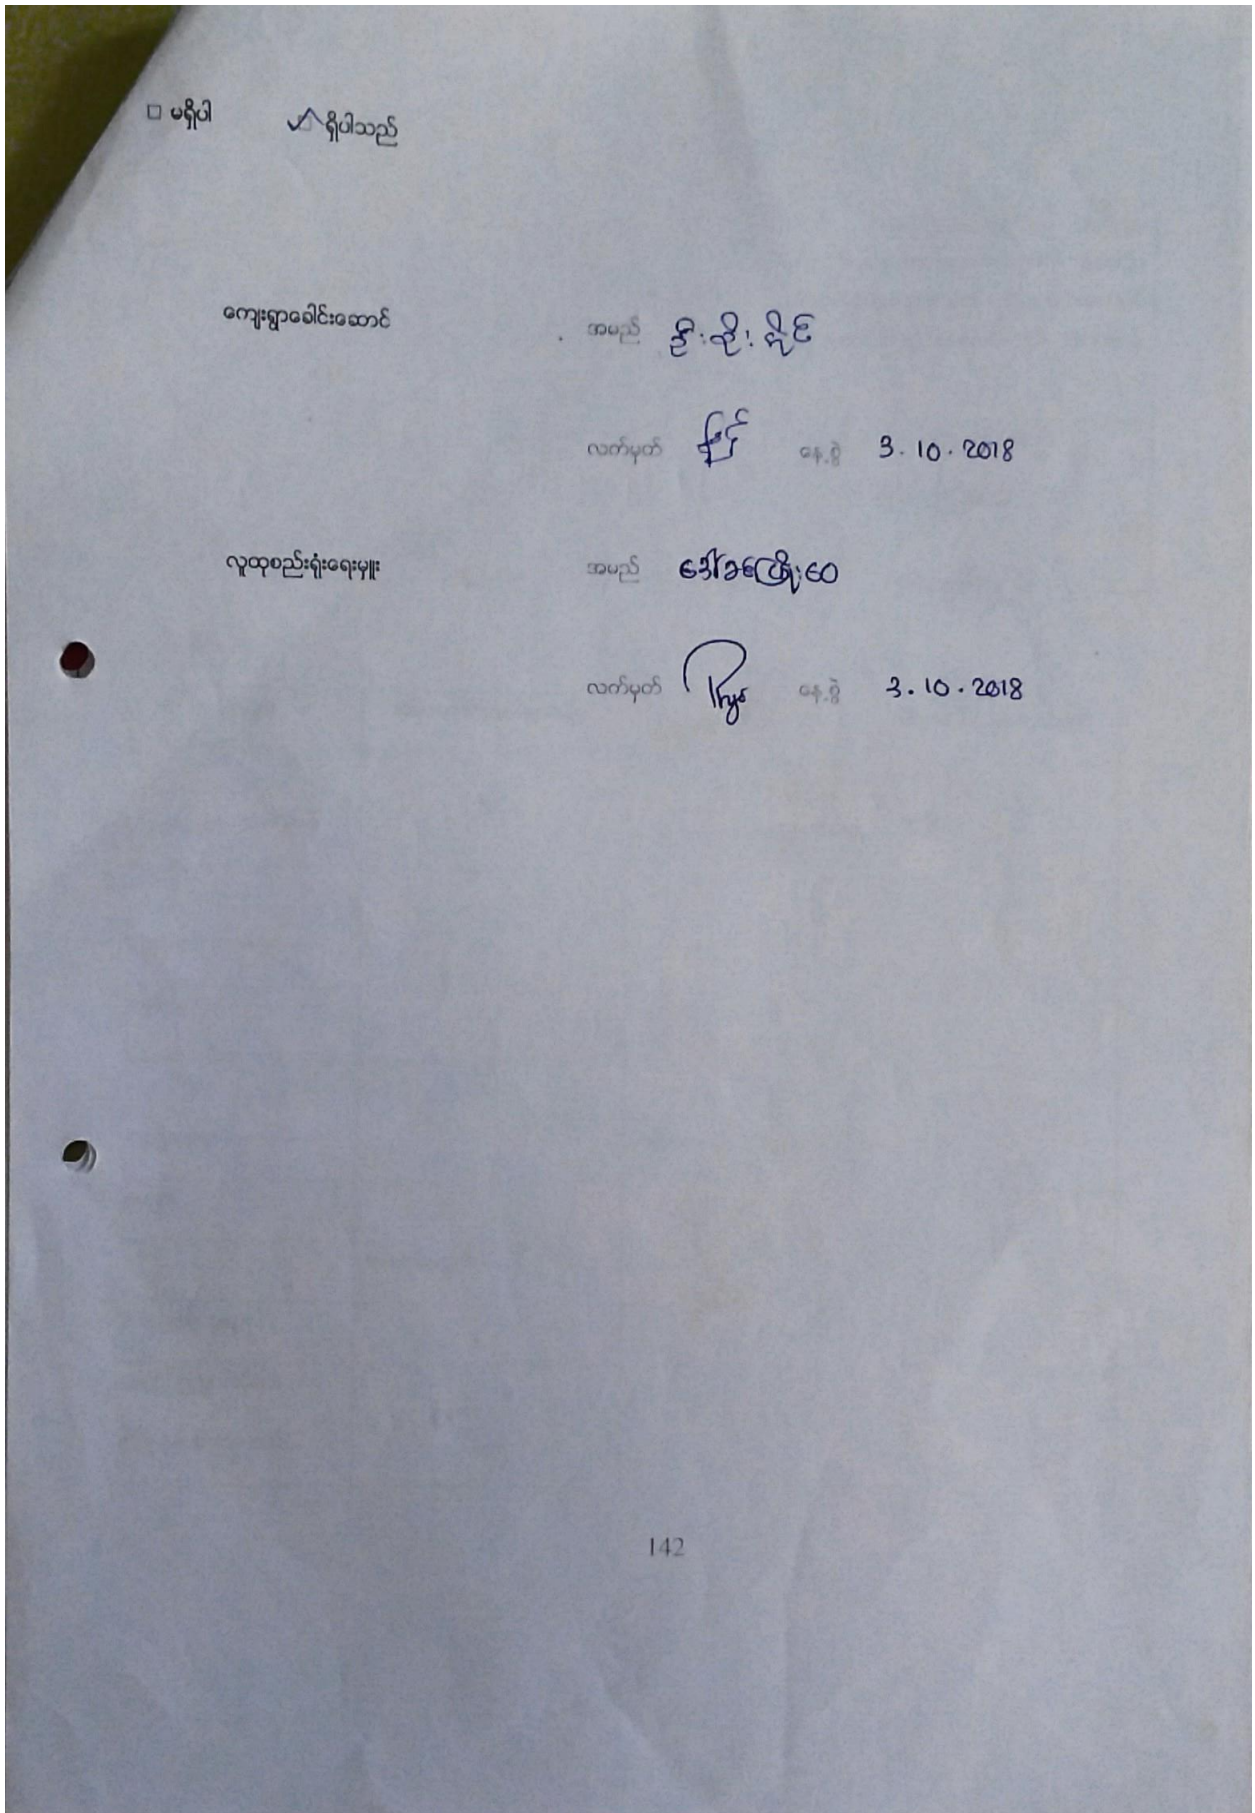 □ မရှိပါ ရှိပါသည်
ကျေးရွာခေါင်းဆောင် အမည် ဦးစိုးနိုင်
လက်မှတ် နေ့စွဲ 3.10.2018
လူထုစည်းရုံးရေးမှူး အမည် ဒေါ်ခင်ဖြိုးဝေ
လက်မှတ် နေ့စွဲ 3.10.2018
142